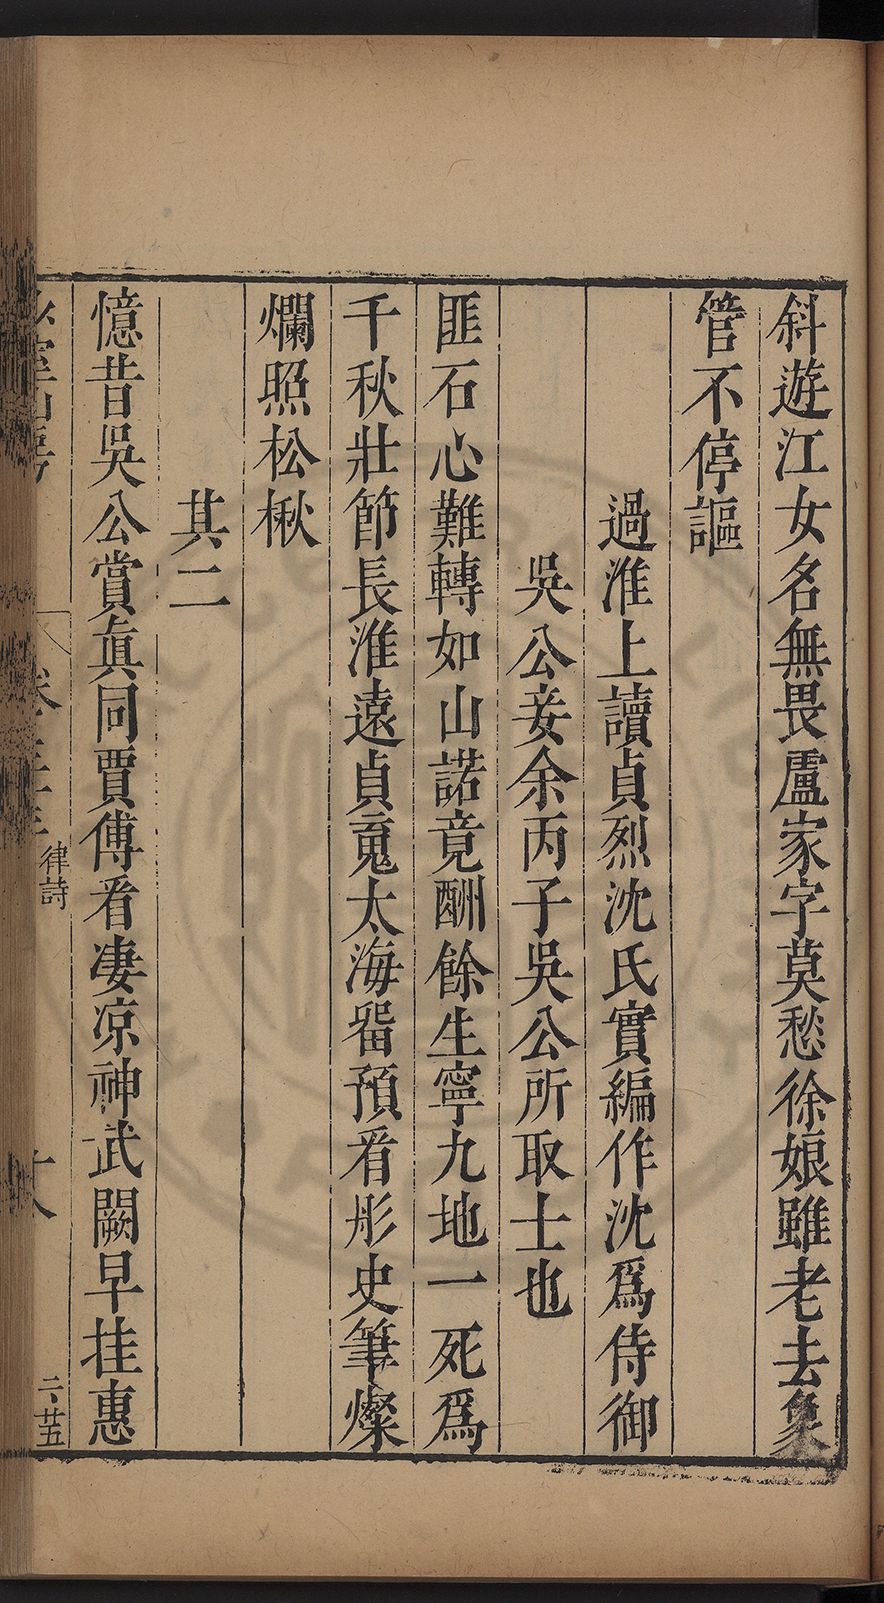 斜遊江女名無畏盧家字莫愁徐娘雖老去象
管不停謳
過淮上讀貞烈沈氏實編作沈爲侍御
吳公妾余丙子吳公所取士也
匪石心難轉如山諾竟酬餘生寧九地一死爲
千秋壯節長淮遠貞䰟太海畱預看彤史筆燦
爛照松楸
其二
憶昔吳公賞眞同賈傅看凄凉神武闕早挂惠
律詩
十八
六廿五